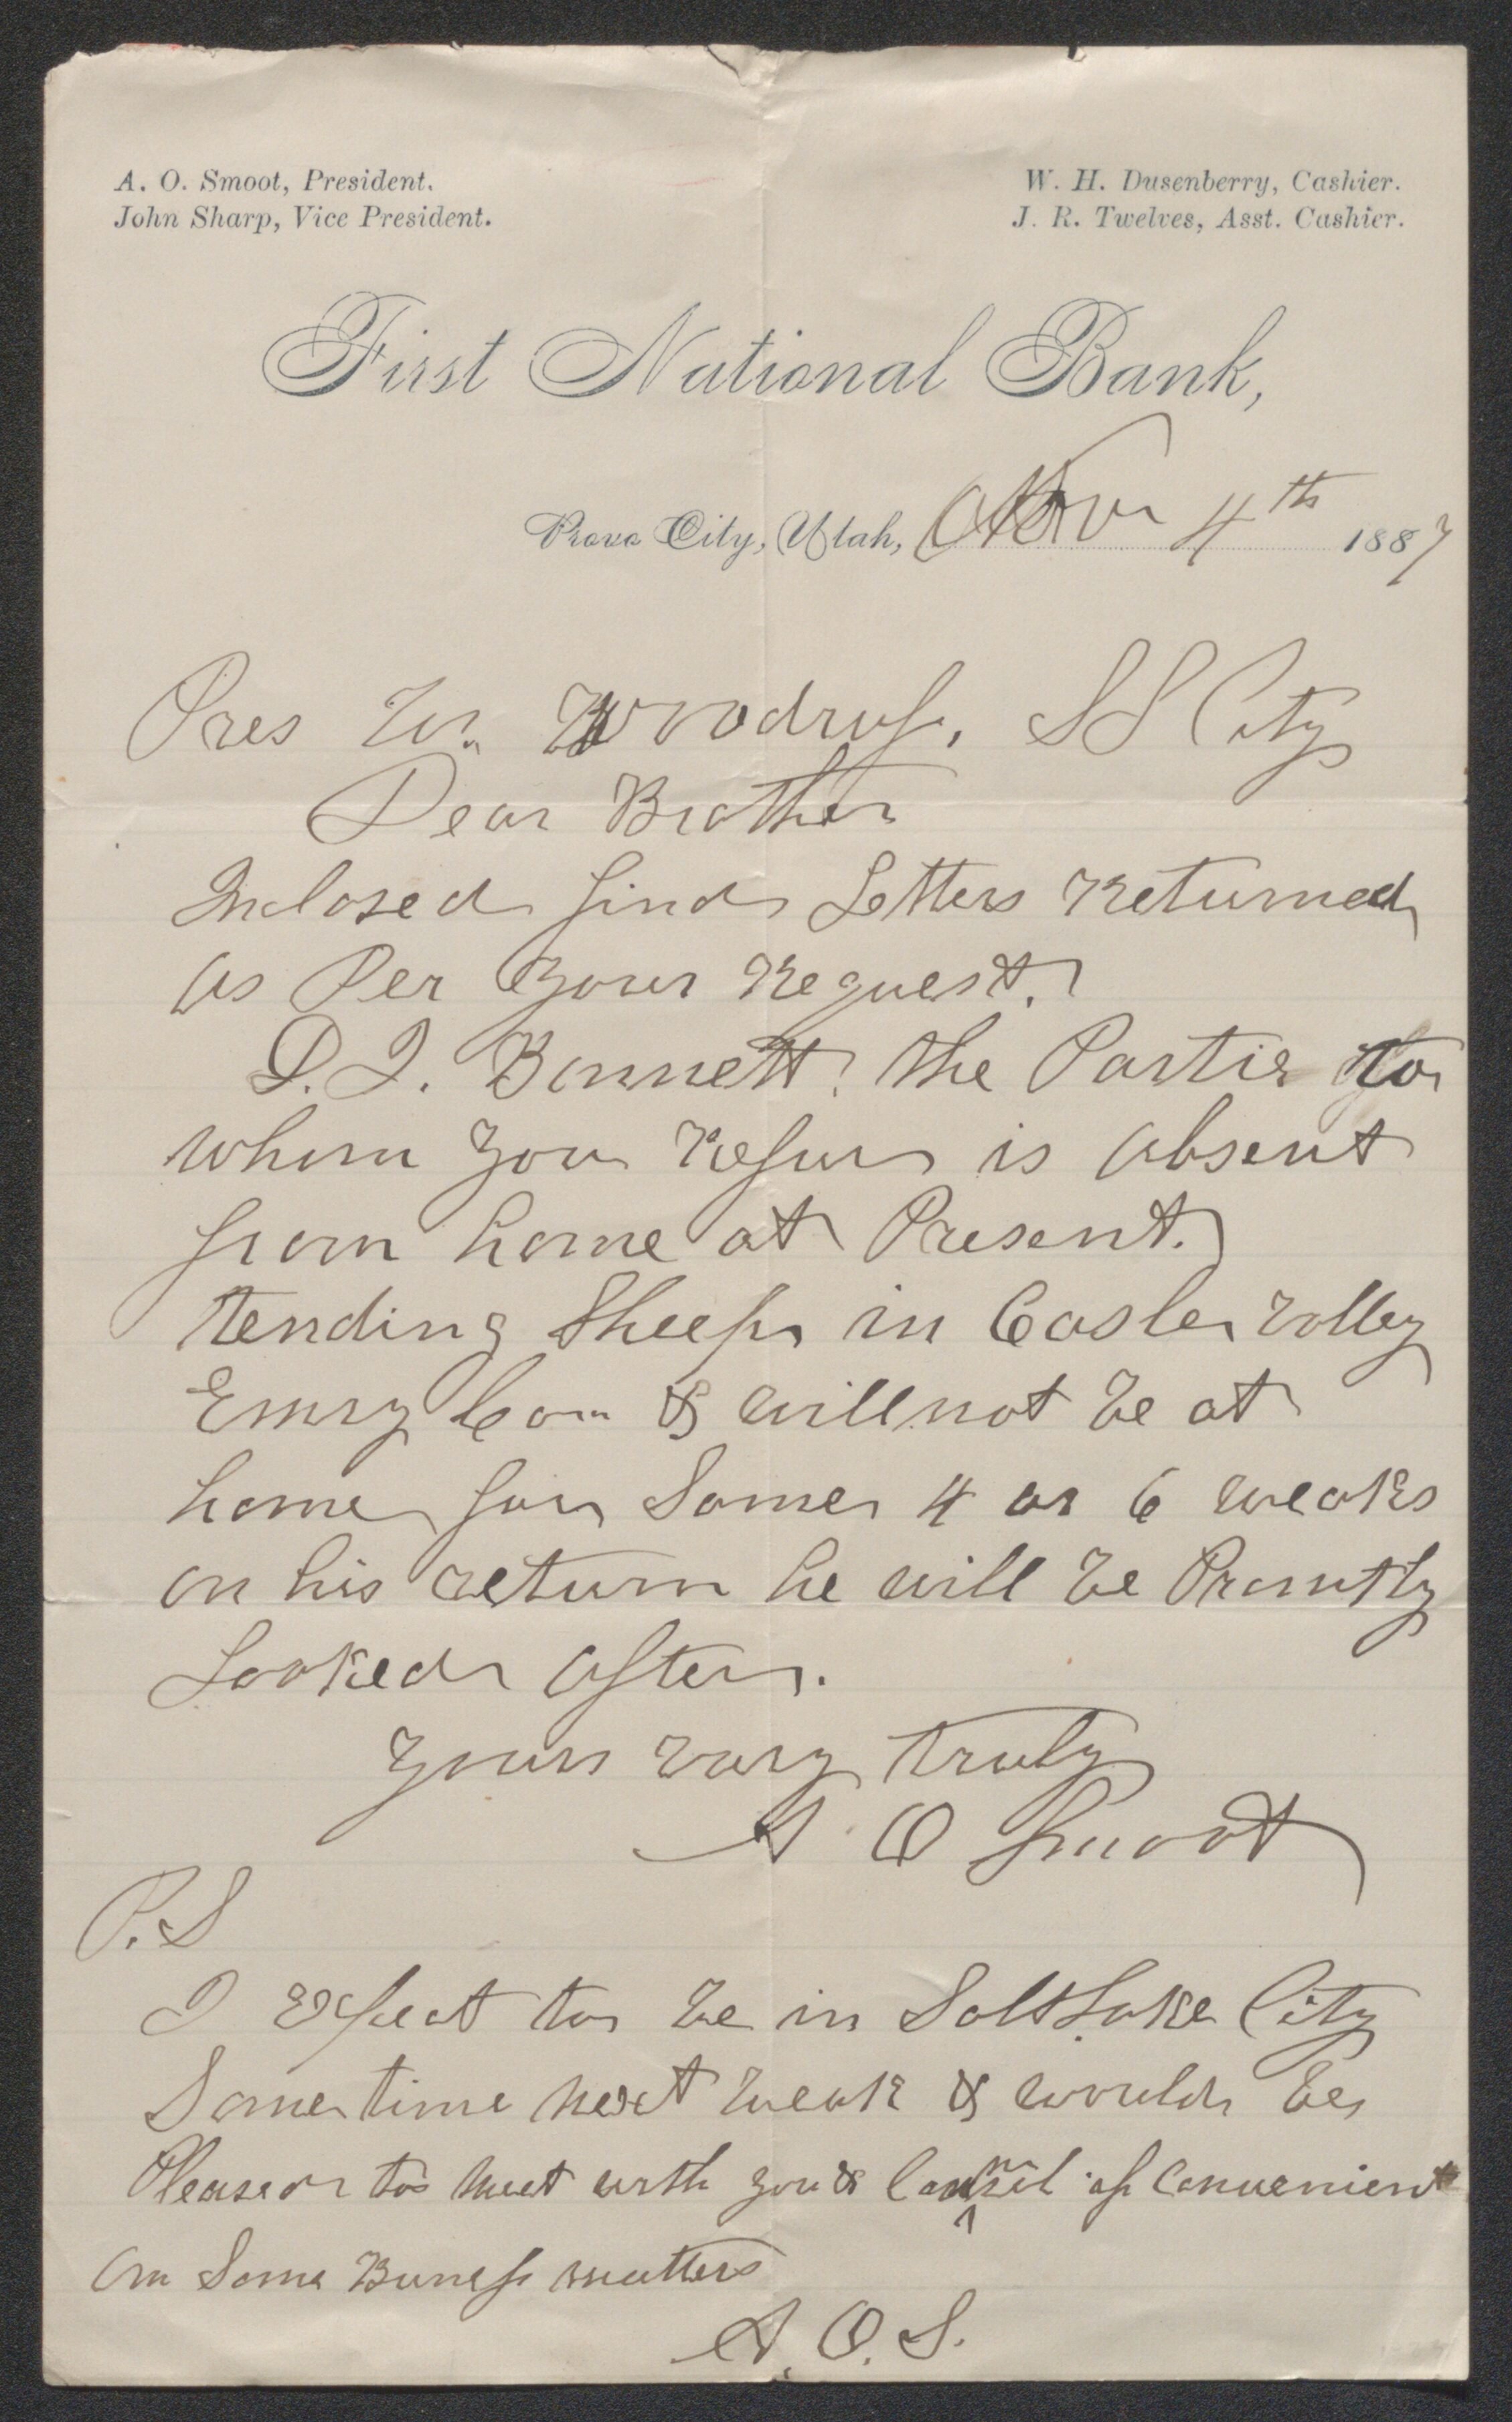 A. O. Smoot, President.
John Sharp, Vice President.
W. H. Dusenberry, Cashier.
J. R. Twelves, Asst. Cashier.
First National Bank,
Provo City, Utah, Nov 4th 1887
Pres W. Woodruf, S L City
Dear Brother
Inclosed find Letters Returned
as Per your Request.
the Partie to
whom you Refur is absent
from home at Present.
tending Sheep in Casle valley
Emry Con & will not be at
home for Some 4 or 6 weaks
on his return he will be Promtly
Looked after.
yours vary truly
A O Smoot
P.S
I Expect to be in Salt Lake City
Some time next weak & would be
Pleased to meet with you & if Convenient
on Some matters
A. O. S.